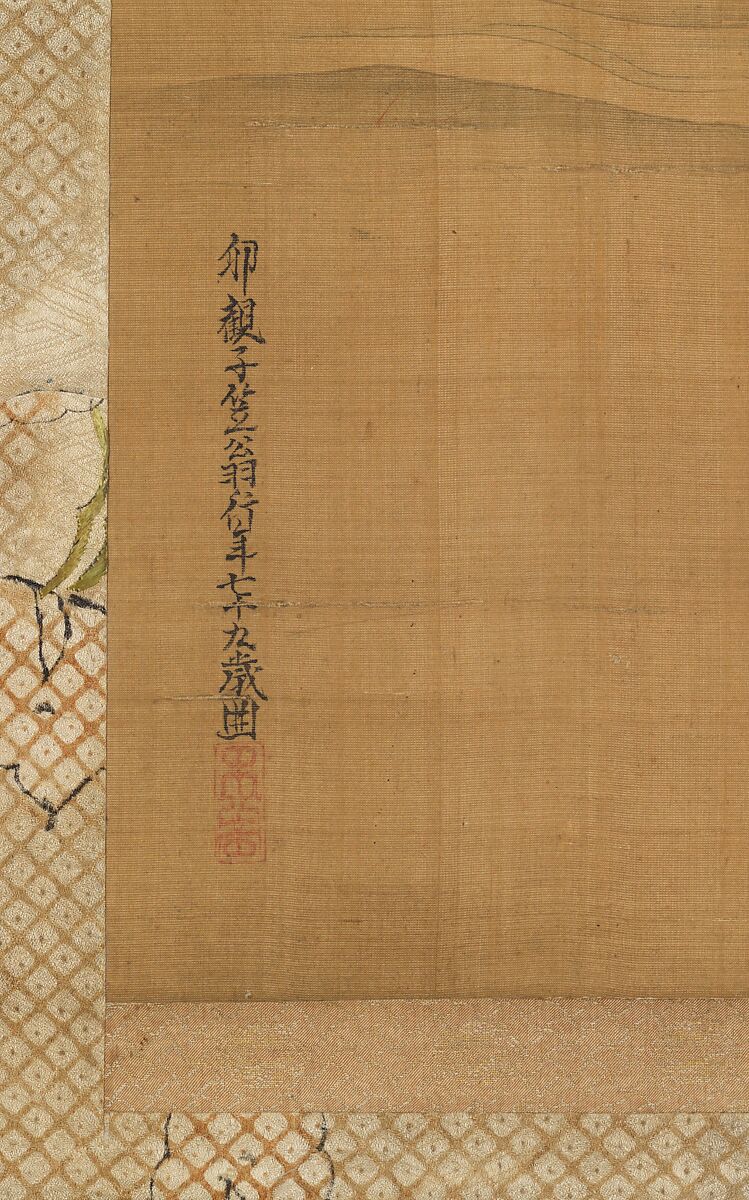 卯観子笠翁行年七十九歳画